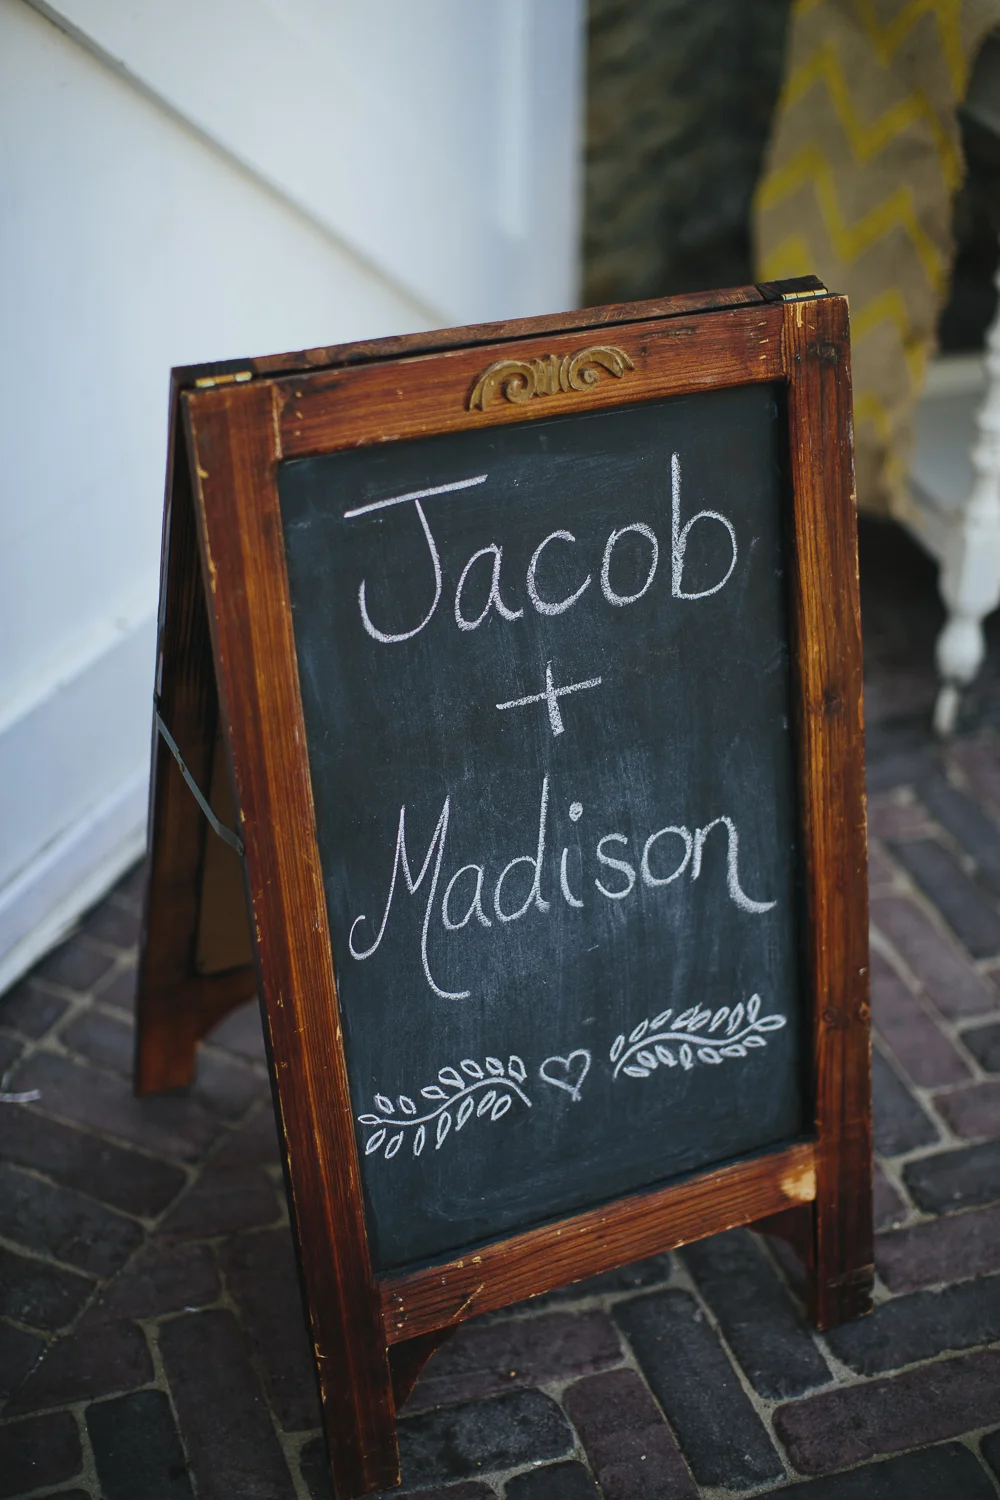 Jacob
+
Madison